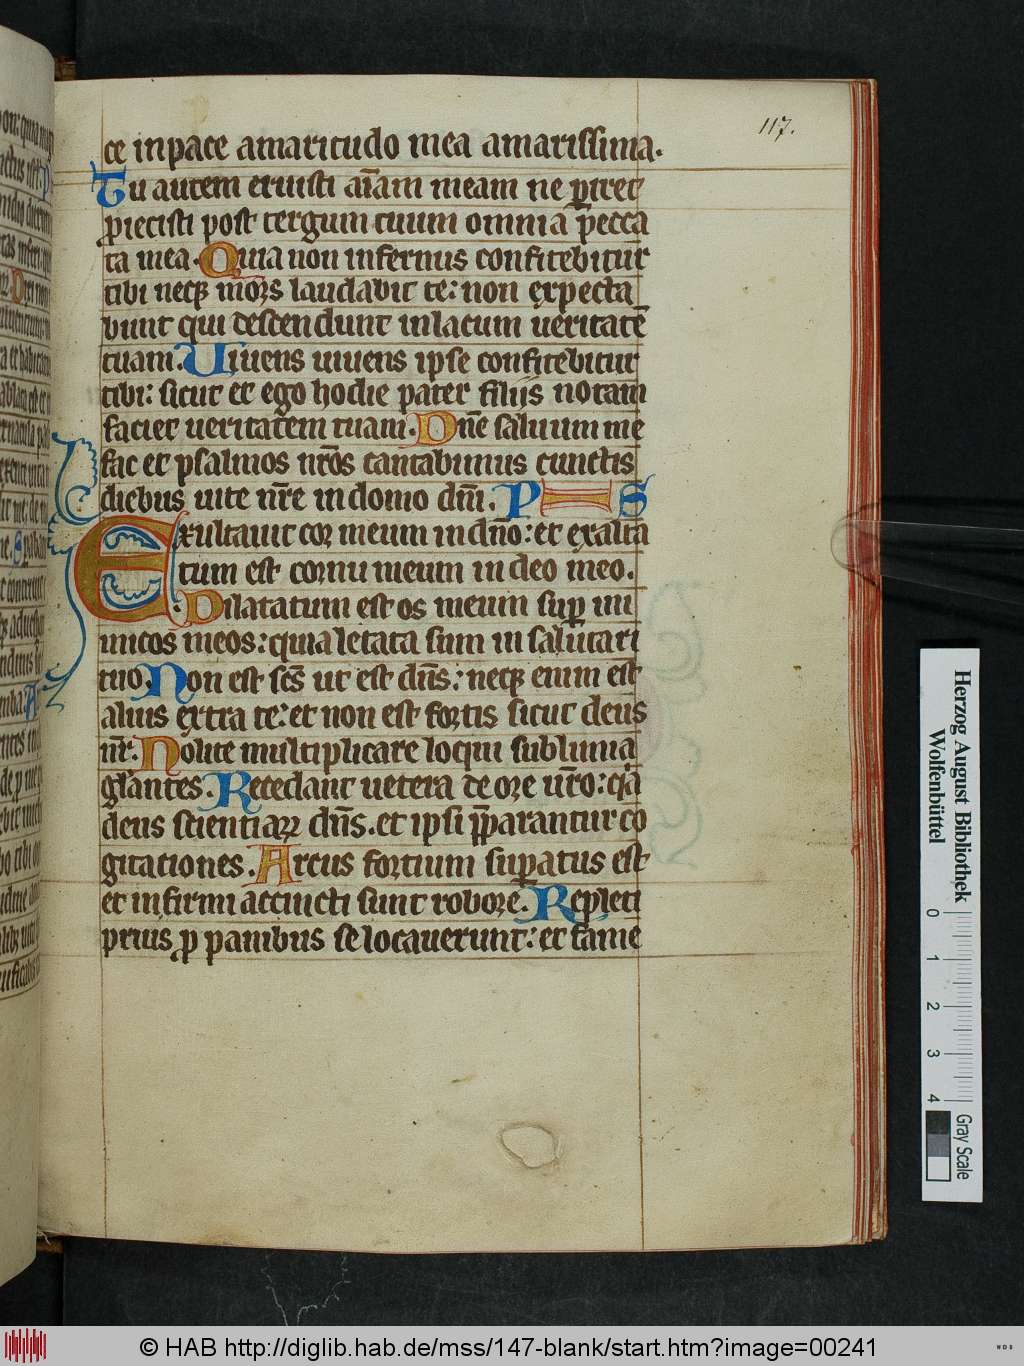 117.
ce in pace amaritudo mea amarissima.
Tu autem eruisti aīam meam ne ꝑiret
ꝓiecisti post tergum tuum omnia pecca
ta mea. Quia non infernus confitebitur
tibi neqꝫ mors laudabit te: non expecta
bunt qui descendunt in lacum ueritatē
tuam. Uiuens uiuens ipse confitebitur
tibi: sicut et ego hodie pater filiis notam
faciet ueritatem tuam. Dn̄e saluum me
fac et psalmos nr̄os cantabimus cunctis
diebus uite nr̄e in domo dn̄i. PS
Exultauit cor meum in dn̄o: et exalta
tum est cornu meum in deo meo.
Dilatatum est os meum suꝑ ini
micos meos: quia letata sum in salutari
tuo. Non est sc̄s ut est dn̄s: neqꝫ enim est
alius extra te: et non est fortis sicut deus
nr̄. Nolite multiplicare loqui sublimia
gl̄antes. Recedant uetera de ore ur̄o: q̄a
deus scientiaꝝ dn̄s. et ipsi p̄parantur co
gitationes. Arcus fortium suꝑatus est
et infirmi accincti sunt robore. Repleti
prius ꝓ panibus se locauerunt: et fame
Herzog August Bibliothek
Wolfenbüttel
0 1 2 3 4
Gray Scale
© HAB http://diglib.hab.de/mss/147-blank/start.htm?image=00241